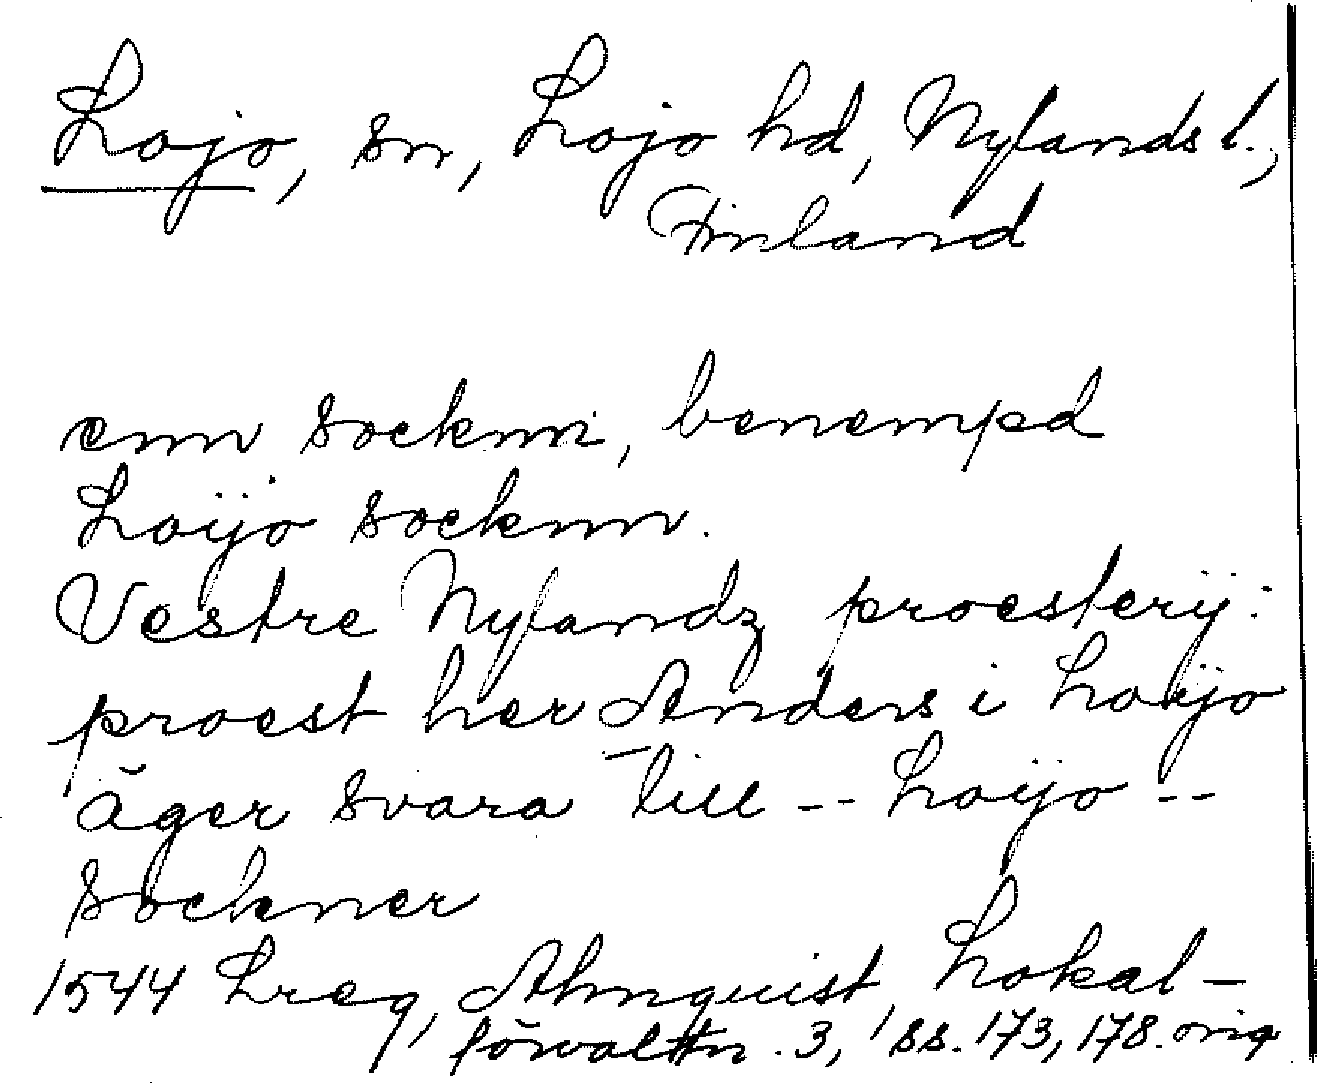 Lojo, sn, Lojo hd, Nylands l.,
Finland
enn socknn, benempd
Loijo socknn.
Vestre Nylandz proesterij:
proest her Anders i Loijo
äger svara till -- Loijo --
sockner
1544 Lreg, Almquist, Lokal-
förvaltn. 3, ss. 173, 178. orig